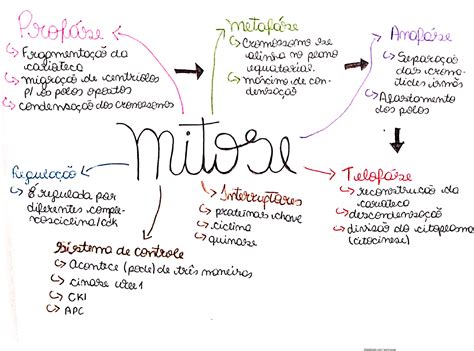 Prófase
↳ Fragmentação da carioteca
↳ migração de centríolos p/ os polos opostos
↳ condensação dos cromossomos
Metáfase
↳ Cromossomo se alinha no plano equatorial.
↳ máximo de condensação
Anáfase
↳ Separação das cromátides irmãs
↳ Afastamento dos polos
mitose
Regulação
↳ É regulada por diferentes complexos ciclina/cdk
Interruptores
↳ proteínas chave
↳ ciclina
↳ quinase
Telófase
↳ reconstrução da carioteca
↳ descondensação
↳ divisão do citoplasma (citocinese)
Sistema de controle
↳ Acontece (pode) de três maneiras
↳ cinase wee1
↳ CKI
↳ APC